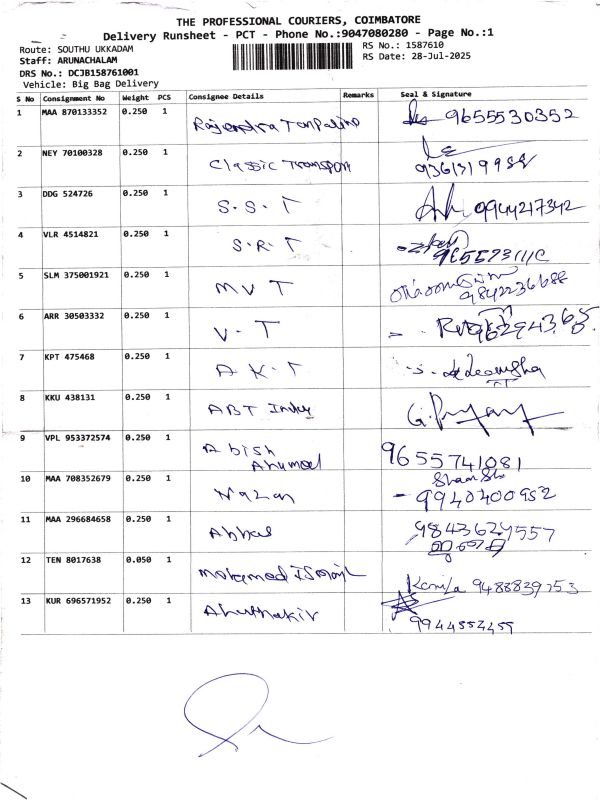 THE PROFESSIONAL COURIERS, COIMBATORE
Delivery Runsheet - PCT - Phone No.:9047080280 - Page No.:1
Route: SOUTHU UKKADAM RS No.: 1587610
Staff: ARUNACHALAM RS Date: 28-Jul-2025
DRS No.: DCJB158761001
Vehicle: Big Bag Delivery
S No Consignment No Weight PCS Consignee Details Remarks Seal & Signature
1 MAA 870133352 0.250 1 Rajendra 9655530352
2 NEY 70100328 0.250 1 Classic Transport
3 DDG 524726 0.250 1 S.S.T 9944217342
4 VLR 4514821 0.250 1 S.R.T
5 SLM 375001921 0.250 1 MVT 9842236688
6 ARR 30503332 0.250 1 V.T
7 KPT 475468 0.250 1 A.K.T
8 KKU 438131 0.250 1 ABT
9 VPL 953372574 0.250 1 Abish 9655741081
10 MAA 708352679 0.250 1 9940400952
11 MAA 296684658 0.250 1 Abbas 9843629557
12 TEN 8017638 0.050 1 Mohamed Ismail
13 KUR 696571952 0.250 1